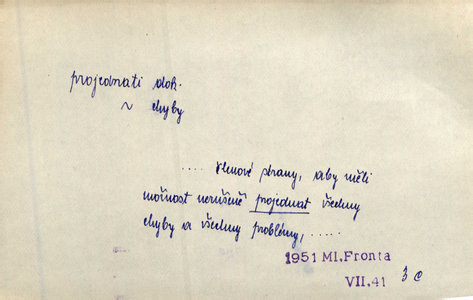 projednati dok.
~ chyby
.... členové strany, aby měli
možnost nerušeně projednat všechny
chyby a všechny problémy, .....
1951 Ml.Fronta
VII,41 3c